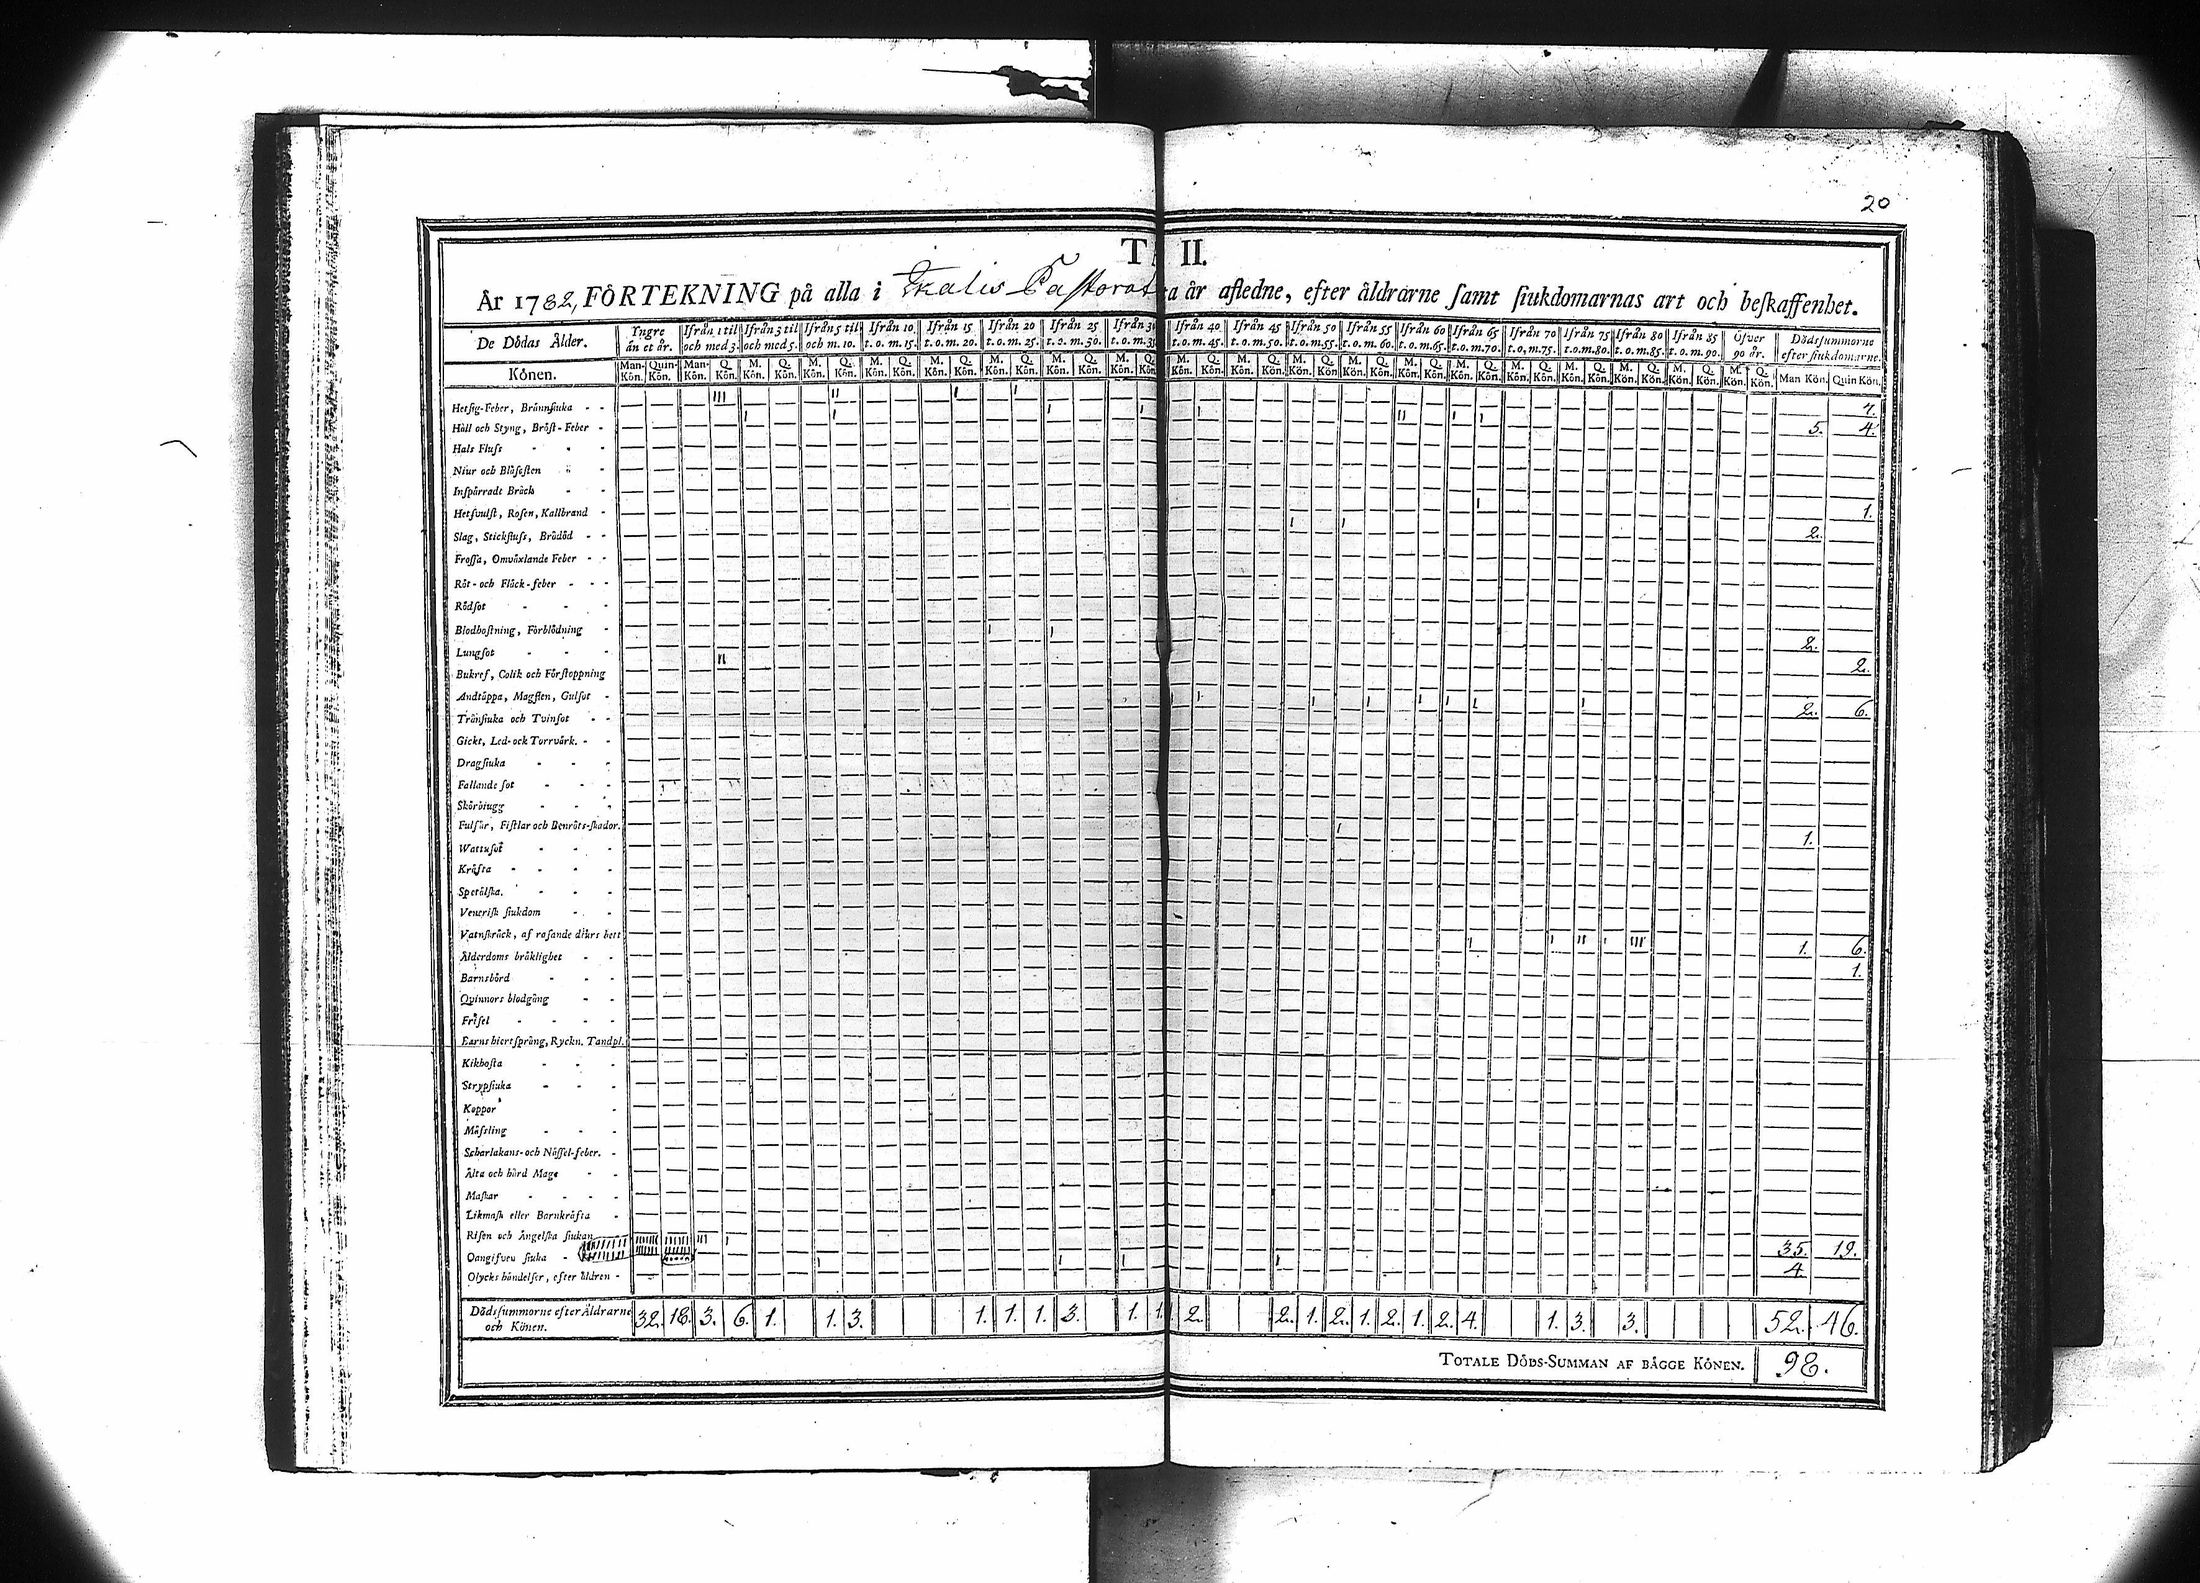 20
T II.
År 1782, FÖRTEKNING på alla i Ikalis Pastorat a år afledne, efter åldrarne samt siukdomarnas art och beskaffenhet.
De Dödas Ålder. Yngre än et år. Ifrån 1 til och med 3. Ifrån 3 til och med 5. Ifrån 5 til och m. 10. Ifrån 10 t. o. m. 15. Ifrån 15 t. o. m. 20. Ifrån 20 t. o. m. 25. Ifrån 25 t. o. m. 30. Ifrån 30 t. o. m. 35 Ifrån 40 t. o. m. 45. Ifrån 45 t. o. m. 50. Ifrån 50 t. o. m. 55. Ifrån 55 t. o. m. 60. Ifrån 60 t. o. m. 65. Ifrån 65 t. o. m. 70. Ifrån 70 t. o. m. 75. Ifrån 75 t. o. m. 80. Ifrån 80 t. o. m. 85. Ifrån 85 t. o. m. 90. Öfver 90 år. Dödssummorne efter siukdomarne.
Könen. Man-Kön. Quin-Kön. Man-Kön. Q. Kön. M. Kön. Q. Kön. M. Kön. Q. Kön. M. Kön. Q. Kön. M. Kön. Q. Kön. M. Kön. Q. Kön. M. Kön. Q. Kön. M. Kön. Q. Kön. M. Kön. Q. Kön. M. Kön. Q. Kön. M. Kön. Q. Kön. M. Kön. Q. Kön. M. Kön. Q. Kön. M. Kön. Q. Kön. M. Kön. Q. Kön. M. Kön. Q. Kön. M. Kön. Q. Kön. M. Kön. Q. Kön. M. Kön. Q. Kön. Man Kön. Quin Kön.
Hetsig-Feber, Brännsiuka - - 7.
Håll och Styng, Bröst-Feber - 5. 4.
Hals Fluss - - -
Niur och Blåsesten - -
Inspärradt Bråck - -
Hetsvulst, Rosen, Kallbrand - 1.
Slag, Stickfluss, Brådöd - - 2.
Frossa, Omväxlande Feber - -
Röt- och Fläck-feber - - -
Rödsot - - -
Blodhostning, Förblödning -
Lungsot - - - 2.
Bukref, Colik och Förstoppning 2.
Andtäppa, Magsten, Gulsot -
Trånsiuka och Tvinsot - - 2. 6.
Gickt, Led- och Torrvärk. - -
Dragsiuka - - -
Fallande sot - - -
Skörbiugg - - -
Fulsår, Fistlar och Benröts-skador.
Wattusot - - - 1.
Kräfta - - - -
Spetälska. - - -
Venerisk siukdom - -
Vatnskräck, af rasande diurs bett
Ålderdoms bräklighet - - 1. 6.
Barnsbörd - - - 1.
Qvinnors blodgång - -
Frisel - - - -
Barns hiertsprång, Ryckn. Tandpl.
Kikhosta - - -
Strypsiuka - - -
Koppor -
Mässling - - -
Scharlakans- och Nässel-feber. -
Älta och hård Mage - -
Maskar - - - -
Likmask eller Barnkräfta -
Risen och Ängelska siukan
Oangifven siuka - 35. 19.
Olycks händelser, efter åldren - 4.
Dödssummorne efter Åldrarne och Könen. 32. 18. 3. 6. 1. 1. 3. 1. 1. 1. 3. 1. 1. 2. 2. 1. 2. 1. 2. 1. 2. 4. 1. 3. 3. 52. 46.
TOTALE DÖDS-SUMMAN AF BÄGGE KÖNEN. 98.